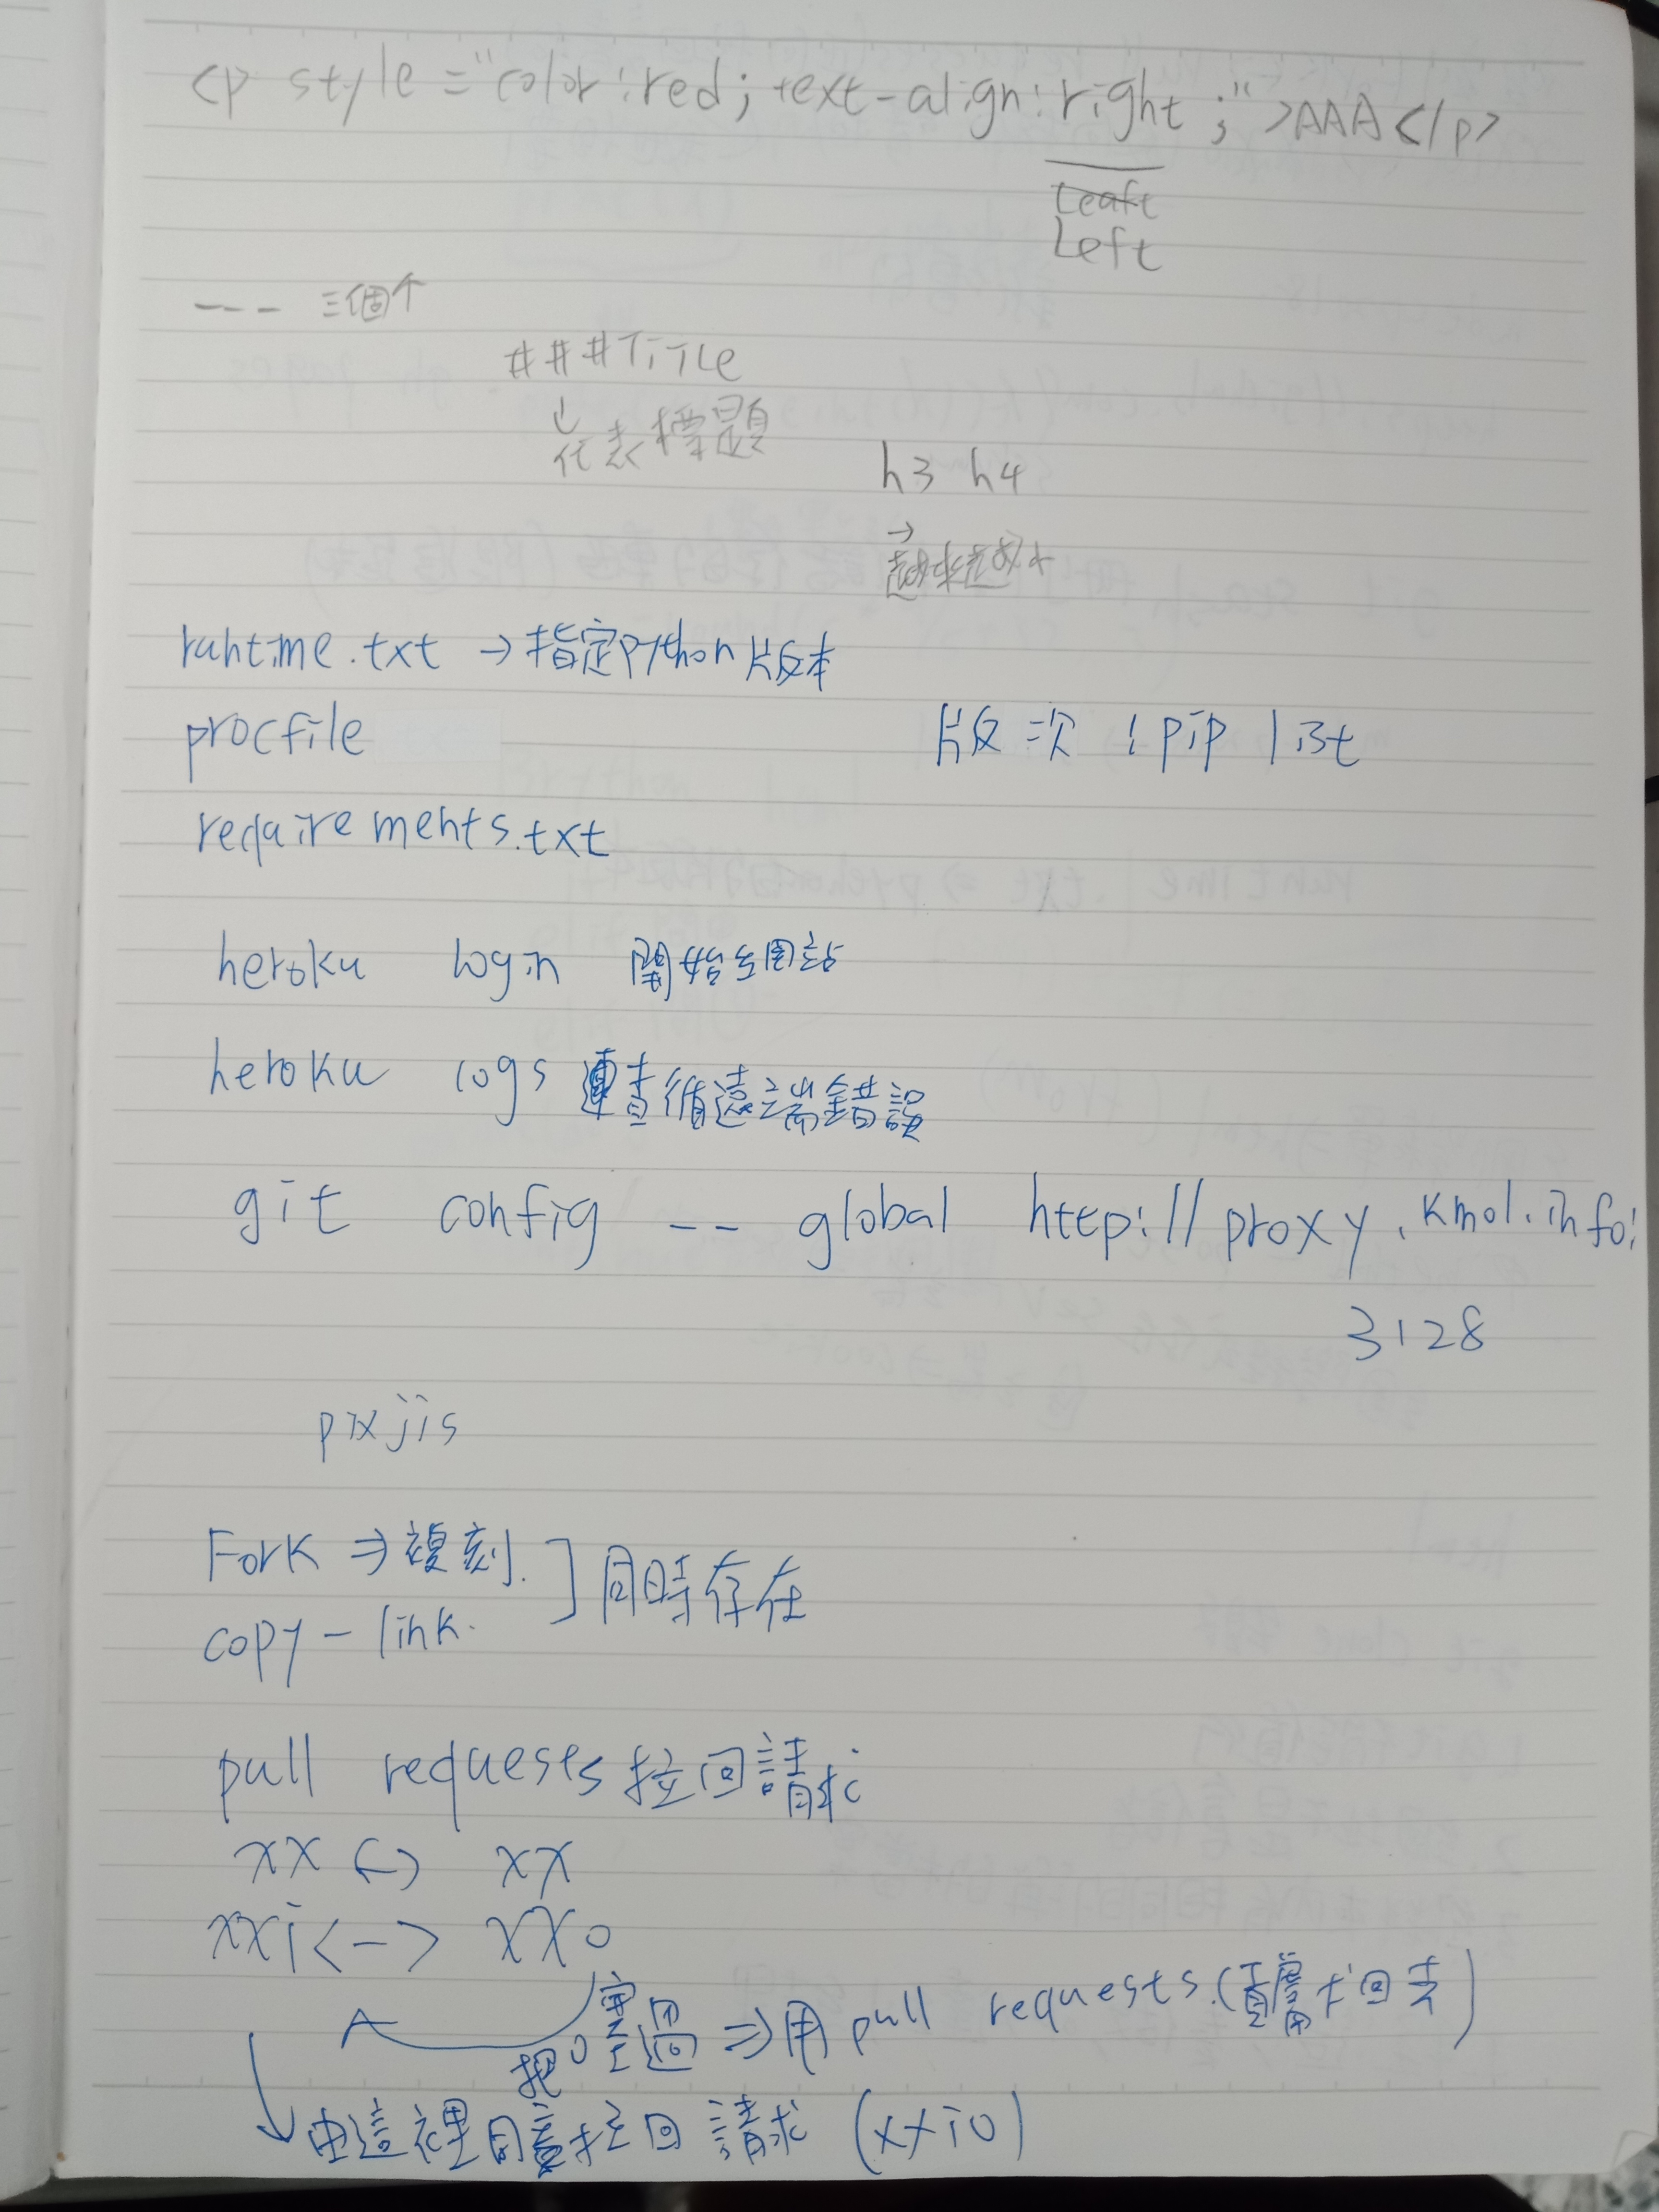 <p style="color:red; text-align:right;">AAA</p>
Leaft
Left
--- 三個个
###TiTLe
↓
代表標題
h3 h4
→
越來越小
runtime.txt → 指定python版本
procfile
版次 !pip list
requirements.txt
heroku login 開始至網站
heroku logs 查循遠端錯誤
git config -- global http://proxy.kmol.info:
3128
pixjis
Fork ⇒ 複刻.
copy - link.
] 同時存在
pull requests 拉回請求
xx <-> xx
xxi <-> xxo
把o塞過 ⇒ 用 pull requests.(需才回去)
由這裡同意拉回請求 (xxio)